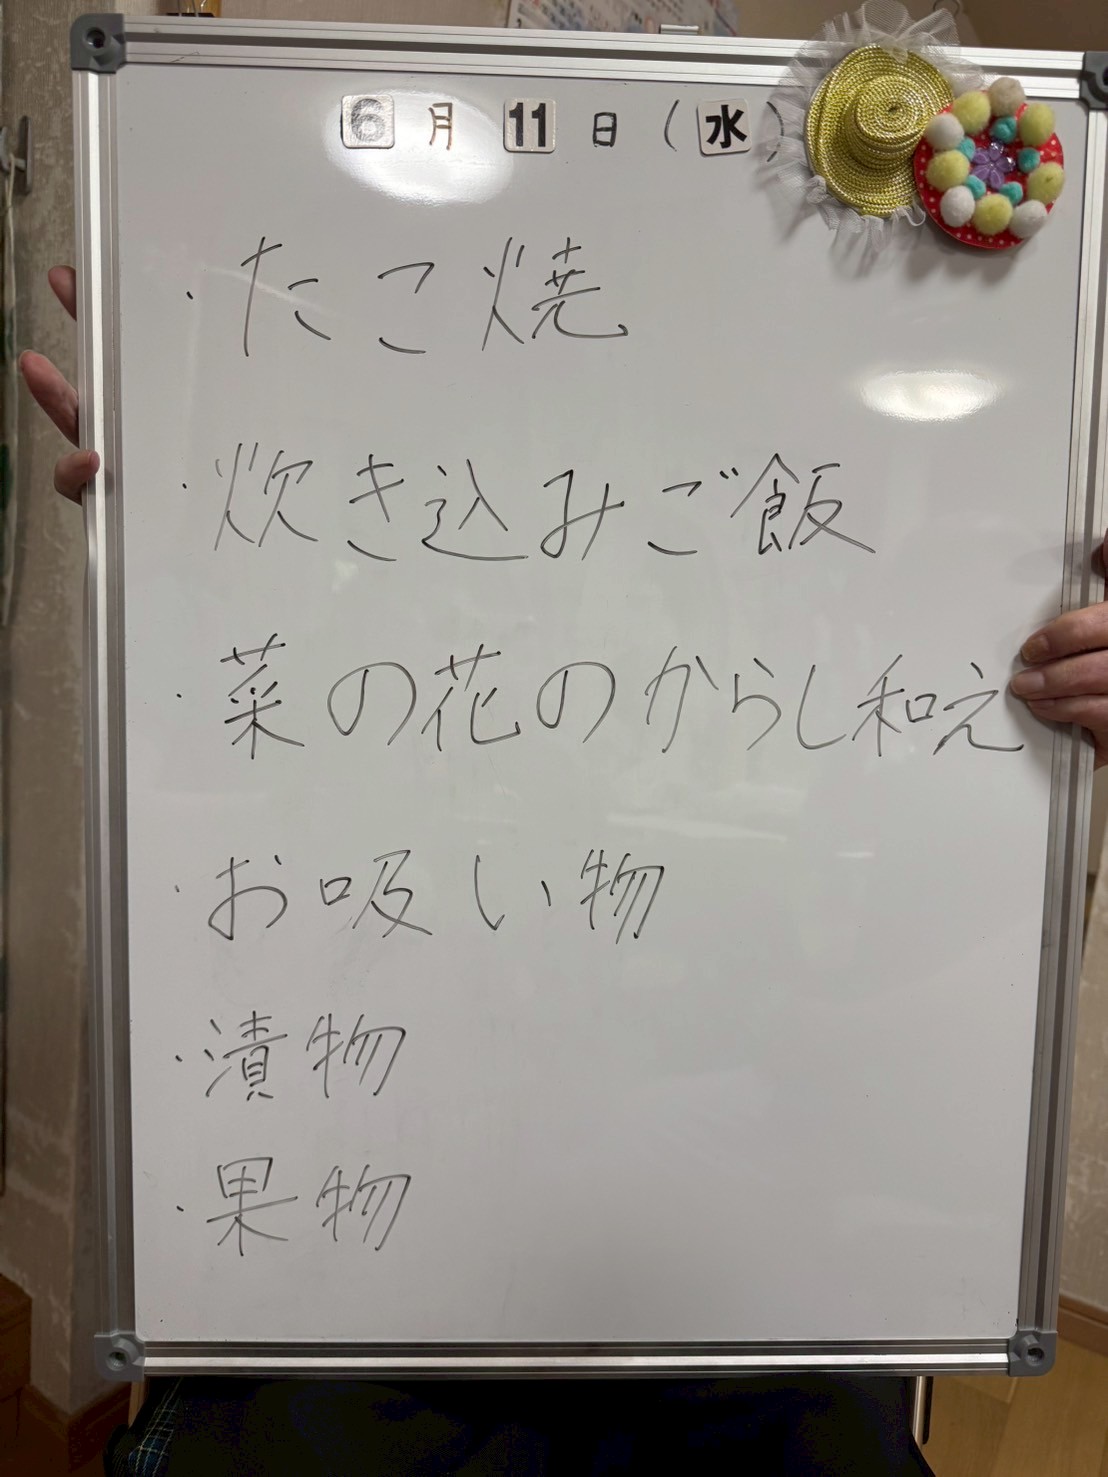 6月11日(水)
・たこ焼
・炊き込みご飯
・菜の花のからし和え
・お吸い物
・漬物
・果物